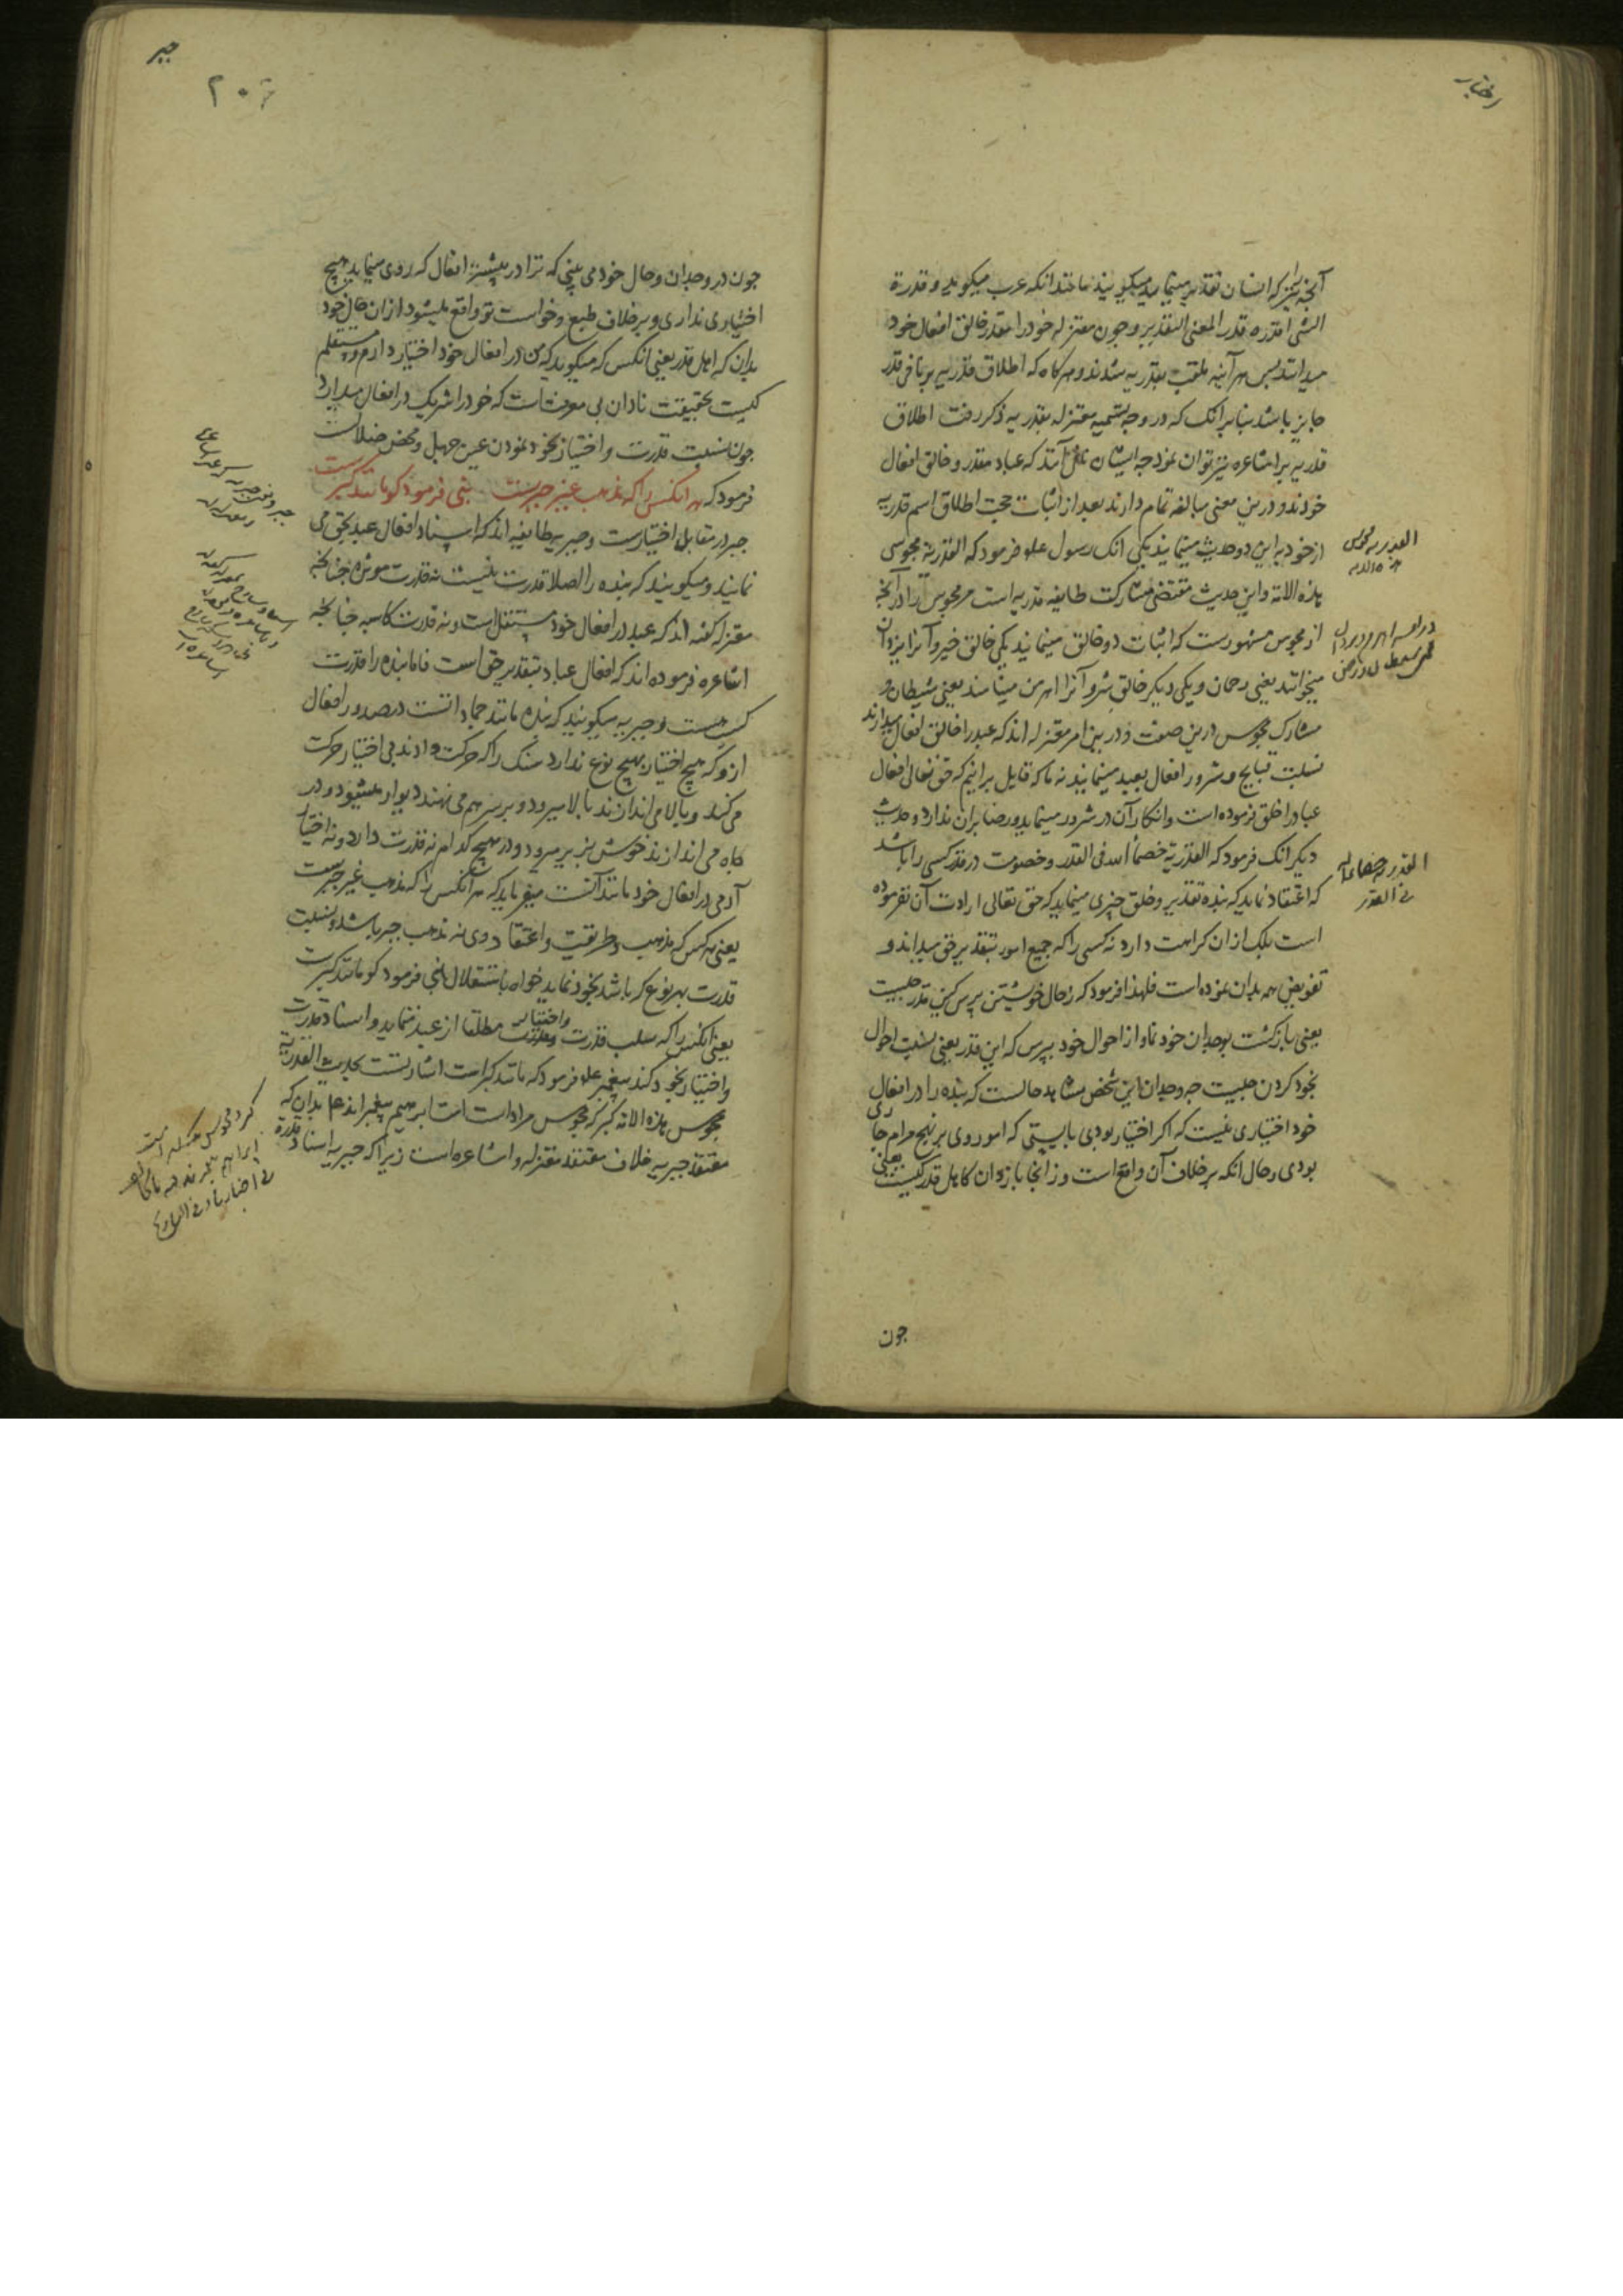 اختیار
آنچیز که انسان تقدیر مینماید میگویند مانند آنکه عرب میگوید و قدرة
الشی اقدره قدرا لمعنی التقدیر و چون معتزله خود را مقدر و خالق افعال خود
میدانند پس هر آینه ملقب بقدریه شدند و هرگاه که اطلاق قدریه بر نافی قدر
جایز باشد بنابرانک که در وجه تسمیه معتزله بقدریه ذکر رفت اطلاق
قدریه بر اشاعره نیز توان نمود چه ایشان آنند که عباد مقدر و خالق افعال
خودند و درین معنی مبالغه تمام دارند بعد از اثبات حجت اطلاق اسم قدریه
از خود به این دو حدیث مینمایند یکی انک رسول علم فرمود که القدریة مجوس
هذه الامة و این حدیث مقتضی مشارکت طایفه قدریه است مر مجوس را در آنچه
از مجوس مشهورست که اثبات دو خالق مینمایند یکی خالق خیر و آنرا یزدان
میخوانند یعنی رحمان و یکی دیگر خالق شر و آنرا اهرمن مینامند یعنی شیطان و
مشارک مجوس درین صفت و درین امر معتزله اند که عبد را خالق افعال میدارند
نسبت قبایح و شرور افعال بعبد مینمایند نه ما که قایل براینیم که حق تعالی افعال
عباد را خلق فرموده است و انکار آن در شرور مینماید و رضا بران ندارد و حدیث
دیگر انک فرمود که القدریة خصماء الله فی القدر و خصومت در قدر کسی را باشد
که اعتقاد نماید که بنده تقدیر و خلق چیزی مینماید که حق تعالی ارادت آن نفرموده
است بلک ازان کراهت دارد نه کسی را که جمیع امور بتقدیر حق میداند و
تفویض همه بدان نموده است فلهذا فرمود که ز حال خویشتن پرس کین قدر چیست
یعنی بازگشت بوجدان خود نما و از احوال خود بپرس که این قدر یعنی نسبت احوال
بخود کردن چیست چه وجدان این شخص شاهد حالست که بنده را در افعال
خود اختیاری نیست که اگر اختیار بودی بایستی که امور وی بر نهج مرام جاری
بودی و حال انکه بر خلاف آن واقع است و ز انجا باز دان کاهل قدر کیست یعنی
چون
القدریه مجوس
هذه الامه
القدریه خصماء الله
فی القدر
جبر
۲۰
چون در وجدان و حال خود می بینی که ترا در بیشتر افعال که روی مینماید هیچ
اختیاری نداری و بر خلاف طبع و خواست تو واقع میشود از ان حال خود
بدان که اهل قدر یعنی انکس که میگوید که من در افعال خود اختیار دارم و مستقلم
کیست بحقیقت نادان بی معرفت است که خود را شریک در افعال میدارد
چون نسبت قدرت و اختیار بخود نمودن عین جهل و محض ضلالست
فرمود که هر انکس را که مذهب غیر جبرست نبی فرمود کو مانند گبرست
جبر در مقابل اختیارست و جبریه طایفه اند که اسناد افعال عبد بحق می
نمایند و میگویند که بنده را اصلا قدرت نیست نه قدرت موثره چنانچه
معتزله گفته اند که عبد در افعال خود مستقل است و نه قدرت کاسبه چنانچه
اشاعره فرموده اند که افعال عباد بتقدیر حق است فاما بنده را قدرت
کسب هست و جبریه میگویند که بنده مانند جمادانست در صدور افعال
ازو که هیچ اختیار بهیچ نوع ندارد سنک را که حرکت دادند بی اختیار حرکت
می کند و بالا می اندازند بالا میرود و بر سر هم می نهند دیوار میشود و در
چاه می اندازند خوش بزیر میرود و در هیچ کدام نه قدرت دارد و نه اختیار
آدمی در افعال خود مانند آنست میفرماید که هر انکس را که مذهب غیر جبرست
یعنی هر کس که مذهب و طریقت و اعتقاد وی نه مذهب جبر باشد و نسبت
قدرت بهر نوع که باشد بخود نماید خواه باستقلال نبی فرمود کو مانند گبرست
یعنی انکس را که سلب قدرت واختیار مطلقا از عبد ننماید و اسناد قدرت
و اختیار بخود کند پیغمبر علم فرمود که مانند گبر است اشارتست بحدیث القدریة
مجوس هذه الامة گبر که مجوس مراد است امت ابرهیم پیغمبر اند عم بدان که
معتقد جبریه خلاف معتقد معتزله و اشاعره است زیرا که جبریه اسناد قدرة